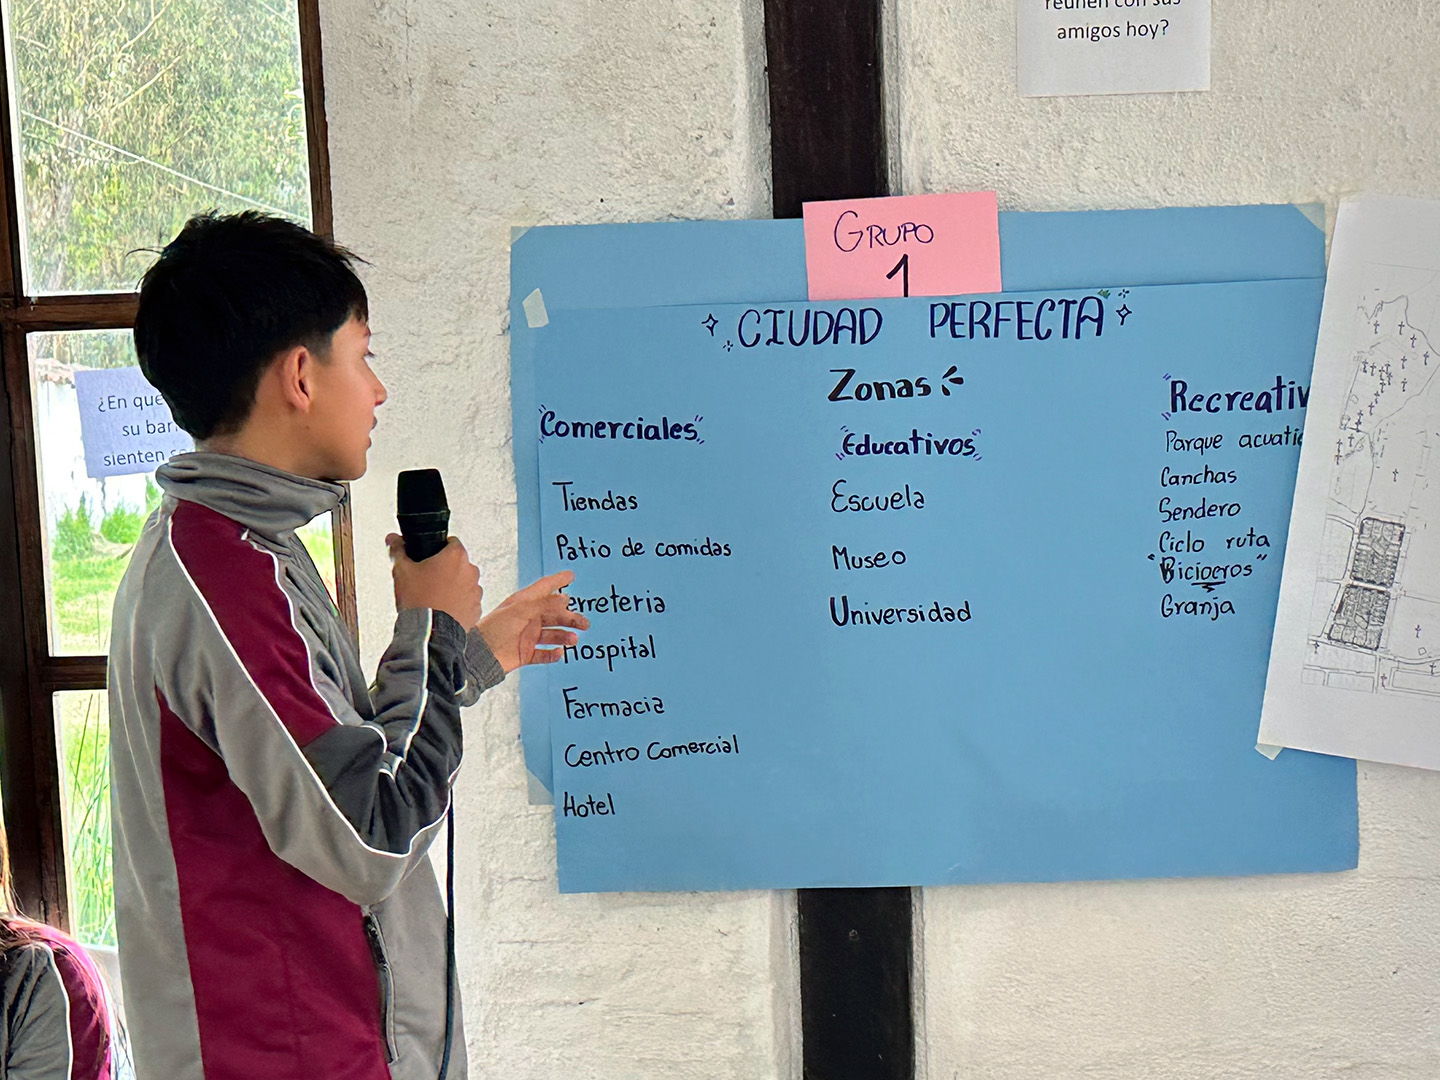 amigos hoy?
¿En que
su bar
sienten
GRUPO
1
CIUDAD PERFECTA
Zonas
"Comerciales"
Tiendas
Patio de comidas
erreteria
Hospital
Farmacia
Centro Comercial
Hotel
"Educativos"
Escuela
Museo
Universidad
"Recreativ
Parque acuatic
Canchas
Sendero
Ciclo ruta
Granja